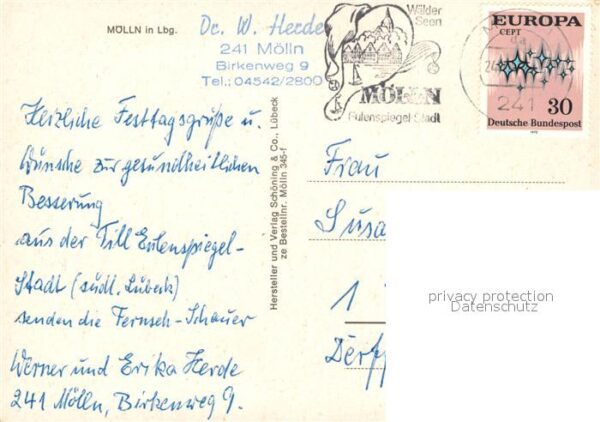 MÖLLN in Lbg.
Dr. W. Herde
241 Mölln
Birkenweg 9
Tel.: 04542/2800
Wälder
Seen
MÖLLN
Eulenspiegel-Stadt
241
EUROPA
CEPT
30
Deutsche Bundespost
1972
Herzliche Festtagsgrüße u.
Wünsche zur gesundheitlichen
Besserung
aus der Till Eulenspiegel-
Stadt (südl. Lübeck)
senden die Fernseh-Schauer
Werner und Erika Herde
241 Mölln, Birkenweg 9.
Hersteller und Verlag Schöning & Co., Lübeck
ze Bestellnr. Mölln 345-f
Frau
Susa
1
privacy protection
Datenschutz